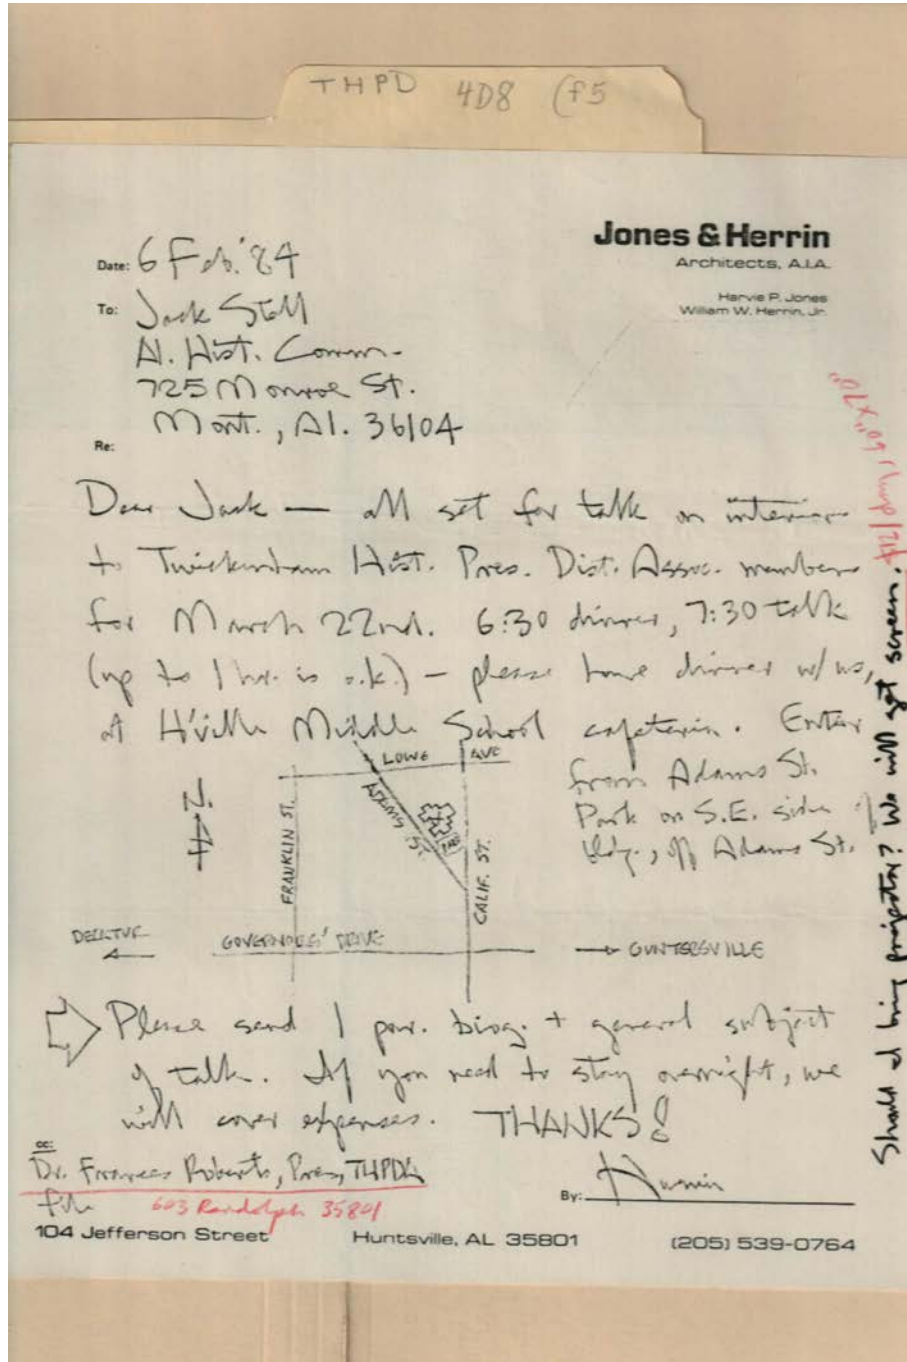 THPD 4D8 (f5
Jones & Herrin
Architects, A.I.A.
Harvie P. Jones
William W. Herrin, Jr.
Date: 6 Feb. '84
To: Jack Stell
Al. Hist. Comm.
725 Monroe St.
Mont., Al. 36104
Re:
Dear Jack — all set for talk on interiors
to Twickenham Hist. Pres. Dist. Assoc. members
for March 22nd. 6:30 dinner, 7:30 talk
(up to 1 hr. is o.k.) – please have dinner w/ us,
at H'ville Middle School cafeteria. Enter
from Adams St.
Park on S.E. side of
bldg., off Adams St.
LOWE AVE
ADAMS ST.
FRANKLIN ST.
CALIF. ST.
N
DECATUR
GOVERNORS' DRIVE
GUNTERSVILLE
Please send 1 par. biog. + general subject
of talk. If you need to stay overnight, we
will cover expenses. THANKS!
cc:
Dr. Frances Roberts, Pres, THPDA
file 603 Randolph 35801
By: Harvie
Should I bring projector? We will get screen.
104 Jefferson Street Huntsville, AL 35801 (205) 539-0764